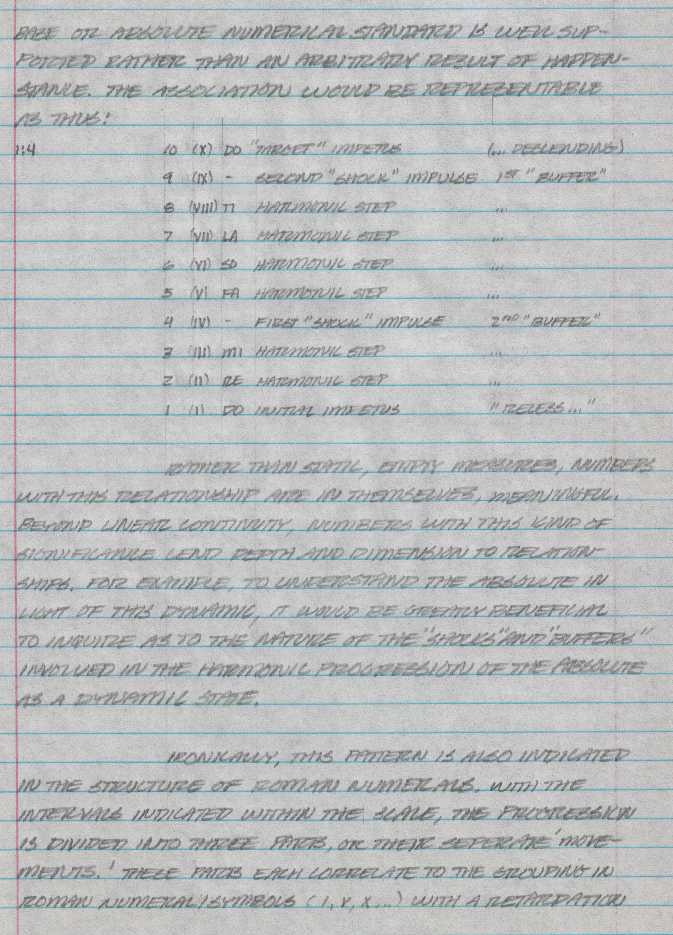 BASE OR ABSOLUTE NUMERICAL STANDARD IS WELL SUP-
PORTED RATHER THAN AN ARBITRARY RESULT OF HAPPEN-
STANCE. THE ASSOCIATION WOULD BE REPRESENTABLE
AS THUS:
1:4 10 (X) DO "TARGET" IMPETUS (... DESCENDING)
9 (IX) - SECOND "SHOCK" IMPULSE 1ST "BUFFER"
8 (VIII) TI HARMONIC STEP ...
7 (VII) LA HARMONIC STEP ...
6 (VI) SO HARMONIC STEP ...
5 (V) FA HARMONIC STEP ...
4 (IV) - FIRST "SHOCK" IMPULSE 2ND "BUFFER"
3 (III) MI HARMONIC STEP ...
2 (II) RE HARMONIC STEP ...
1 (I) DO INITIAL IMPETUS "RECESS..."
RATHER THAN STATIC, EMPTY MEASURES, NUMBERS
WITH THIS RELATIONSHIP ARE IN THEMSELVES, MEANINGFUL.
BEYOND LINEAR CONTINUITY, NUMBERS WITH THIS KIND OF
SIGNIFICANCE LEND DEPTH AND DIMENSION TO RELATION-
SHIPS. FOR EXAMPLE, TO UNDERSTAND THE ABSOLUTE IN
LIGHT OF THIS DYNAMIC, IT WOULD BE GREATLY BENEFICIAL
TO INQUIRE AS TO THE NATURE OF THE "SHOCKS" AND "BUFFERS"
INVOLVED IN THE HARMONIC PROGRESSION OF THE ABSOLUTE
AS A DYNAMIC STATE.
IRONICALLY, THIS PATTERN IS ALSO INDICATED
IN THE STRUCTURE OF ROMAN NUMERALS. WITH THE
INTERVALS INDICATED WITHIN THE SCALE, THE PROGRESSION
IS DIVIDED INTO THREE PARTS, OR THEIR SEPERATE 'MOVE-
MENTS.' THESE PARTS EACH CORRELATE TO THE GROUPING IN
ROMAN NUMERAL/SYMBOLS (I, V, X...) WITH A RETARDATION